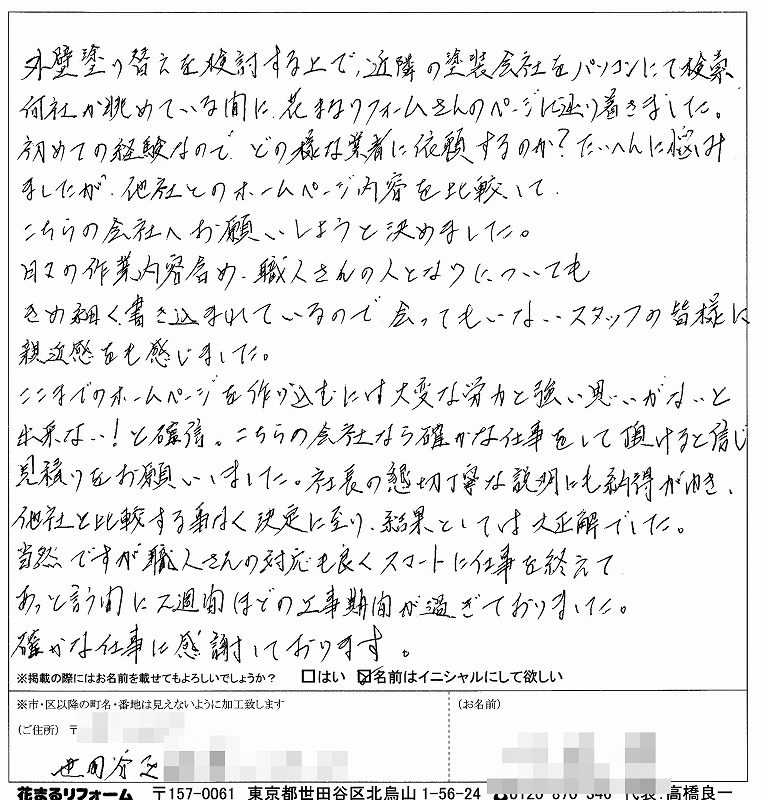 外壁塗り替えを検討する上で、近隣の塗装会社をパソコンにて検索
何社か眺めている間に花まるリフォームさんのページに辿り着きました。
初めての経験なので どの様な業者に依頼するのか?たいへんに悩み
ましたが、他社とのホームページ内容を比較して
こちらの会社へお願いしようと決めました。
日々の作業内容含め、職人さんの人となりについても
きめ細く書き込まれているので 会ってもいないスタッフの皆様に
親近感をも感じました。
ここまでのホームページを作り込むには大変な労力と強い思いがないと
出来ない!と確信。こちらの会社なら確かな仕事をして頂けると信じ
見積りをお願いしました。社長の懇切丁寧な説明にも納得がゆき、
他社と比較する事なく決定に至り、結果としては大正解でした。
当然ですが職人さんの対応も良くスマートに仕事を終えて
あっと言う間に2週間ほどの工事期間が過ぎておりました。
確かな仕事に感謝しております。
※掲載の際にはお名前を載せてもよろしいでしょうか? □はい ☑名前はイニシャルにして欲しい
※市・区以降の町名・番地は見えないように加工致します
(お名前)
(ご住所) 〒
世田谷区
花まるリフォーム 〒157-0061 東京都世田谷区北烏山1-56-24 代表:高橋良一